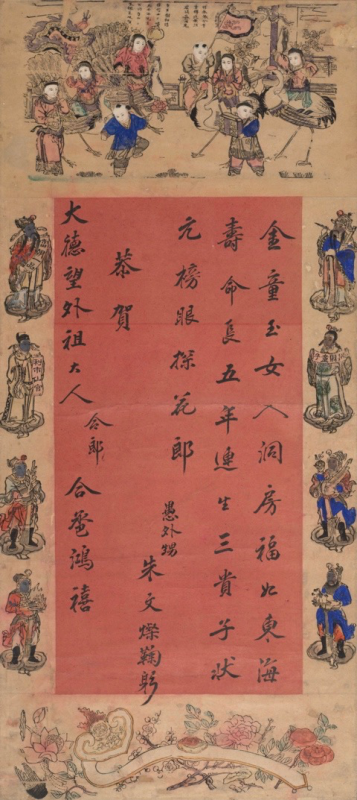 金童玉女入洞房福如東海
壽命長五年連生三貴子狀
元榜眼探花郎
愚外甥
朱文燦鞠躬
恭賀
大德望外祖大人
令郎
合巹鴻禧